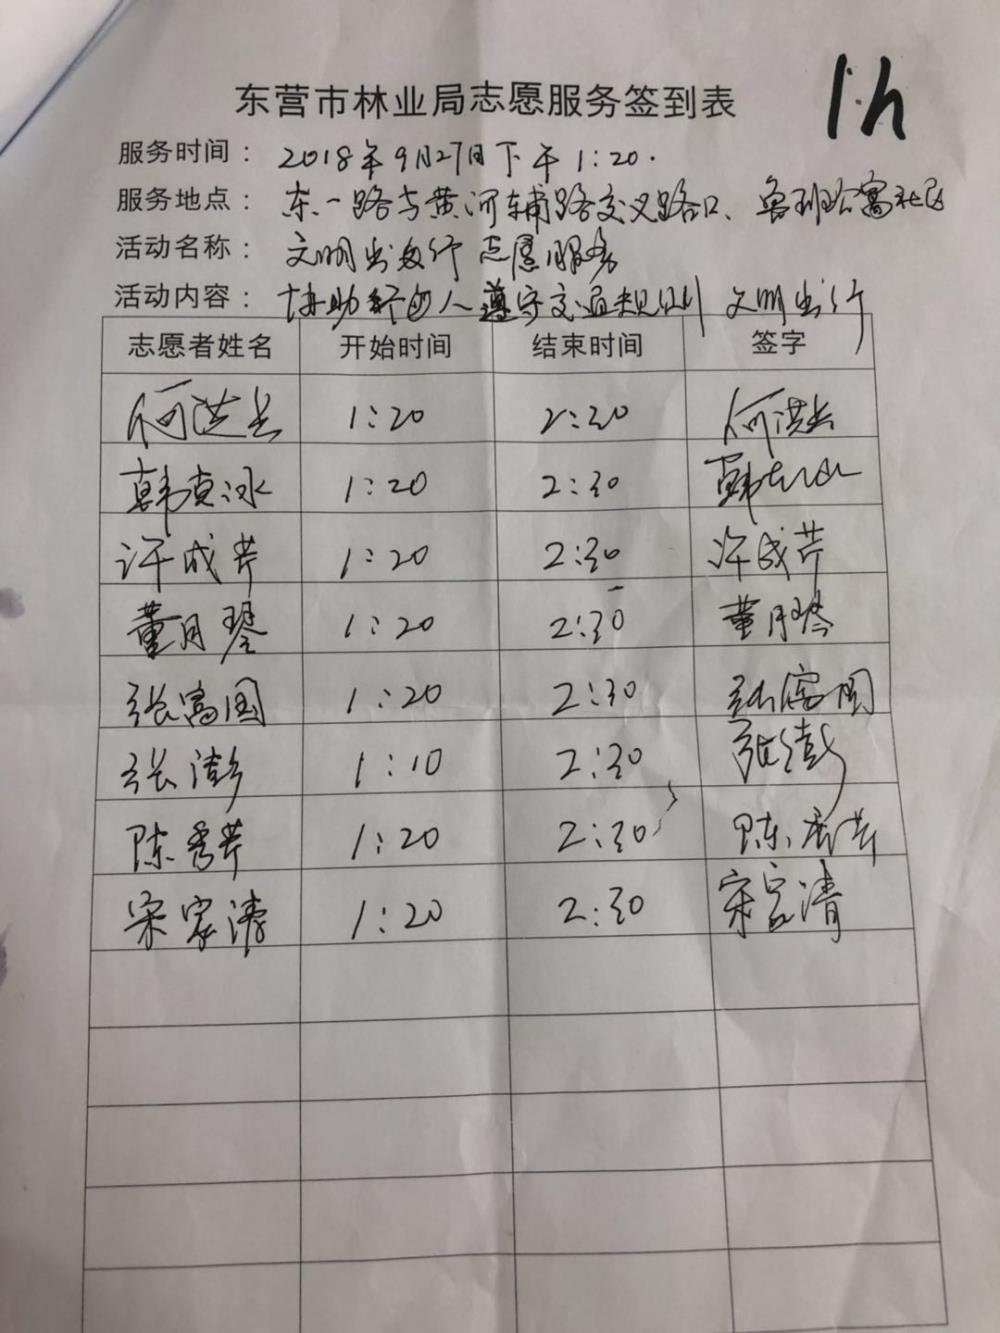 1.h
东营市林业局志愿服务签到表
服务时间： 2018年9月27日下午1:20.
服务地点： 东一路与黄河辅路交叉路口、鲁班公寓社区
活动名称： 文明出行 志愿服务
活动内容： 协助 人遵守交通规则 文明出行
志愿者姓名 开始时间 结束时间 签字
何洪 1:20 2:30 何洪
韩 冰 1:20 2:30 韩
许成芹 1:20 2:30 许成芹
董月琴 1:20 2:30 董月琴
张富国 1:20 2:30 张富国
张澎 1:10 2:30 张澎
陈秀芹 1:20 2:30 陈秀芹
宋家清 1:20 2:30 宋家清